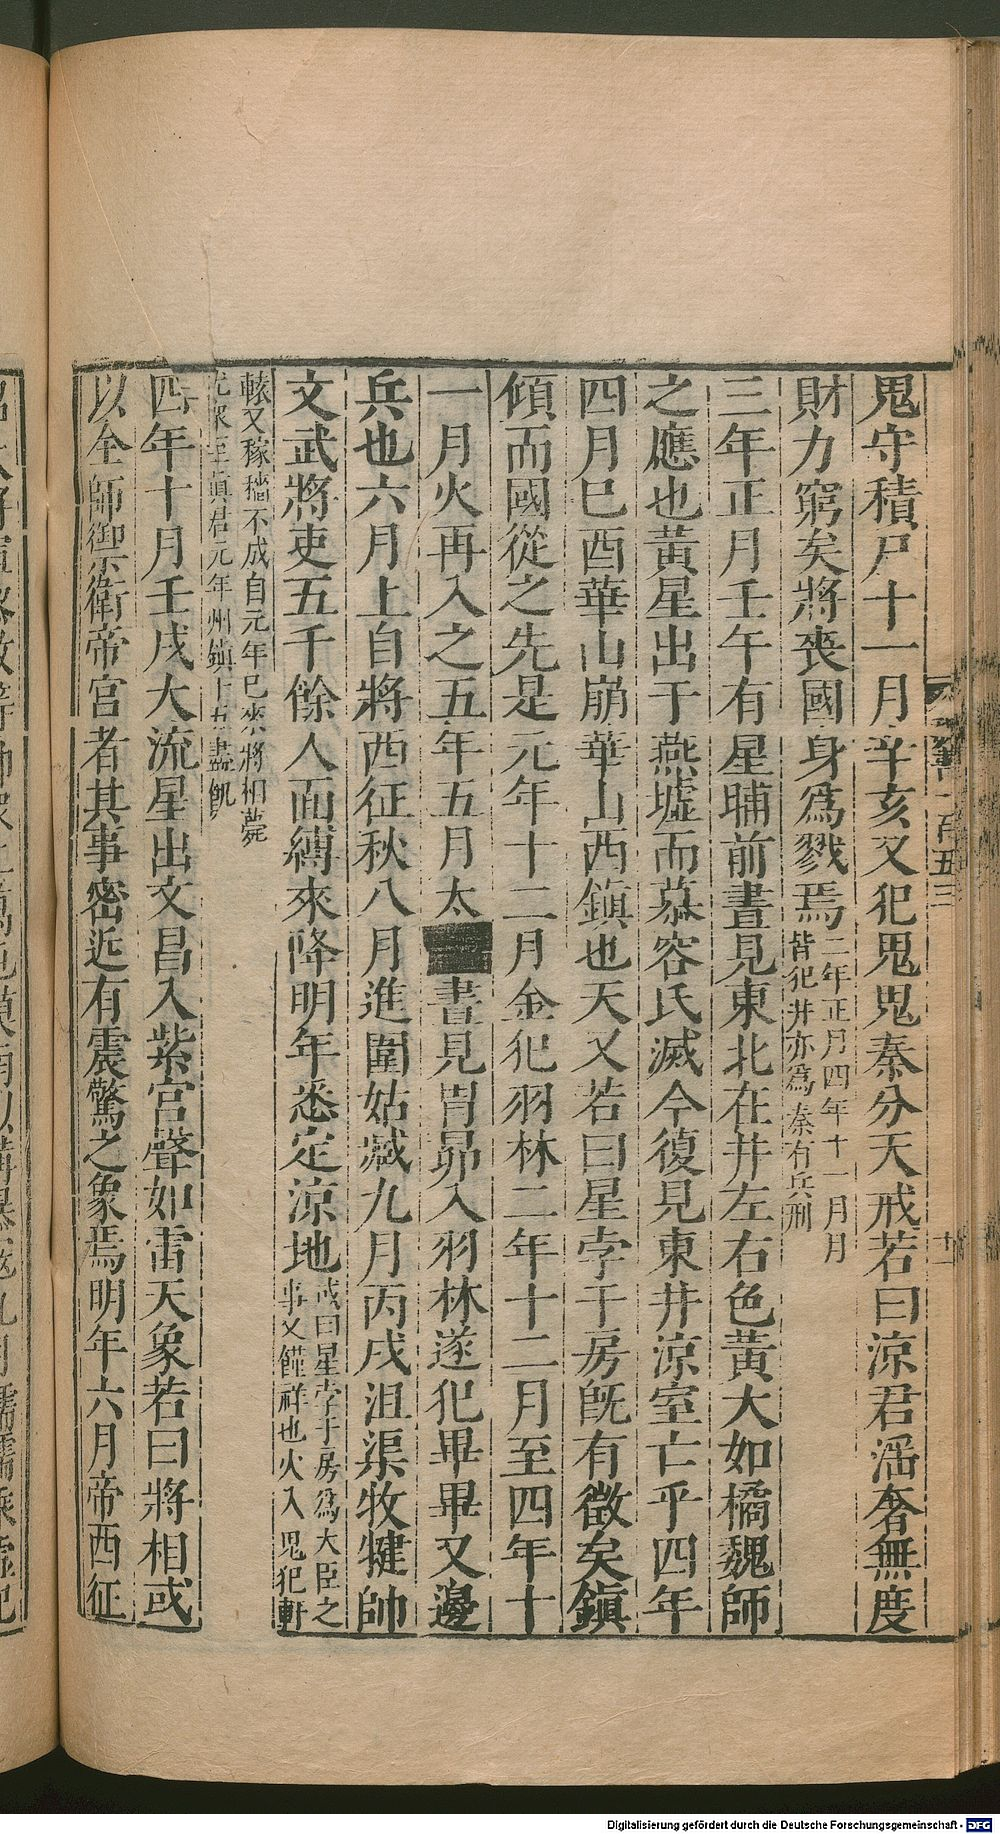 鬼守積尸十一月辛亥又犯鬼鬼秦分天戒若曰涼君滛奢無度
財力窮矣將喪國身爲戮焉二年正月四年十一月月皆犯井亦爲秦有兵刑
三年正月壬午有星晡前晝見東北在井左右色黃大如橘魏師
之應也黃星出于燕墟而慕容氏滅今復見東井涼室亡乎四年
四月巳酉華山崩華山西鎮也天又若曰星孛于房旣有徵矣鎮
傾而國從之先是元年十二月金犯羽林二年十二月至四年十
一月火再入之五年五月太晝見胃昴入羽林遂犯畢畢又邊
兵也六月上自將西征秋八月進圍姑臧九月丙戌沮渠牧犍帥
文武將吏五千餘人面縛來降明年悉定涼地或曰星孛于房爲大臣之事又饉祥也火入鬼犯軒
轅又稼穡不成自元年巳來將相薨尤衆至眞君元年州鎮十五盡飢
四年十月壬戌大流星出文昌入紫宮聲如雷天象若曰將相或
以全師禦衛帝宮者其事密近有震驚之象焉明年六月帝西征
Digitalisierung gefördert durch die Deutsche Forschungsgemeinschaft - DFG